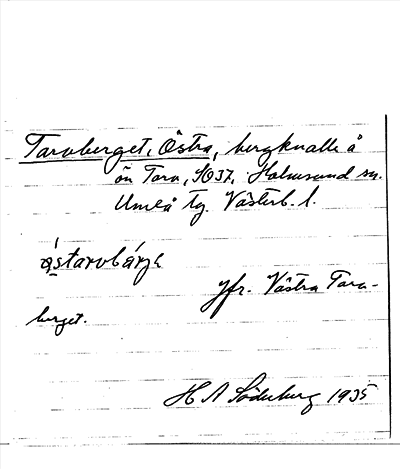 Tarvberget, Östra, bergknalle å
ön Tarv, S937, Holmsund sn.
Umeå tg. Västerb. l.
Jfr. Västra Tarv-
berget.
H A Söderberg 1935